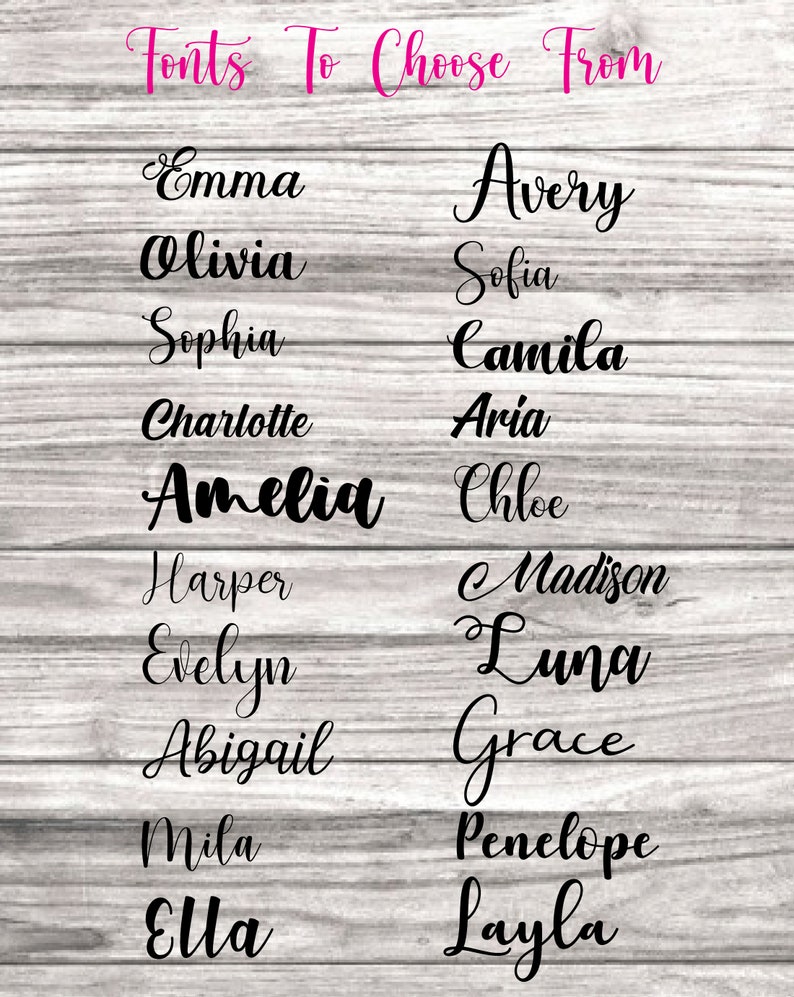 Fonts To Choose From
Emma
Olivia
Sophia
Charlotte
Amelia
Harper
Evelyn
Abigail
Mila
Ella
Avery
Sofia
Camila
Aria
Chloe
Madison
Luna
Grace
Penelope
Layla